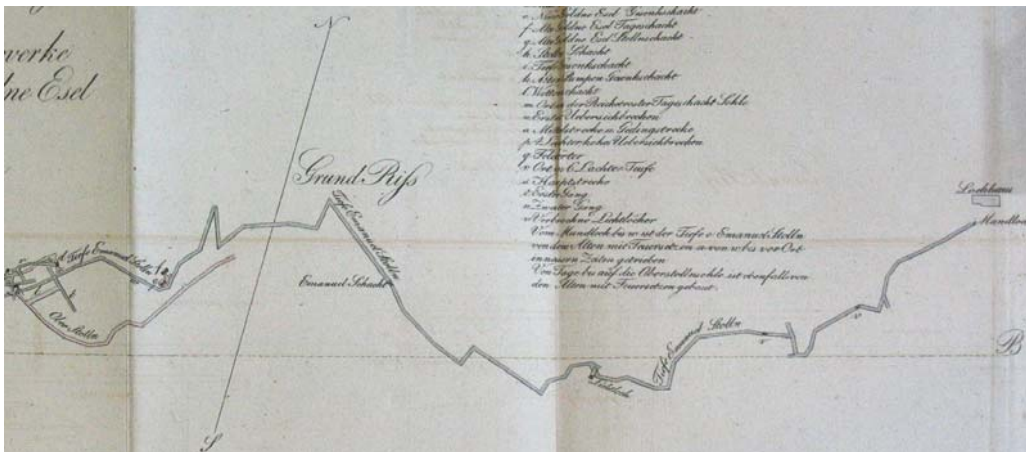 werke
ne Esel
N
e. Neue Goldne Esel Gesenkschacht
f. Alte Goldne Esel Tageschacht
g. Alte Goldne Esel Stollnschacht
Schacht
i. Tiefe Gesenkschacht
k. Alter Pumpen Gesenkschacht
l. Wetterschacht
m. Ort in der Reicherroster Tageschacht Sohle
n. Erste Uebersichbrechen
o. Mittelstrecke u. Gedingstrecke
Lichter hohes Uebersichbrechen
q. Feldörter
r. Ort in 6 Lachter Teufe
s. Hauptstrecke
t. Erster Gang
u. Zweiter Gang
v. Verbrochne Lichtlöcher
Vom Mundloch bis w ist der Tiefe Emanuel Stolln
von den Alten mit Feuersetzen a von w bis vor Ort
in neuern Zeiten getrieben
Von Tage bis auf die Oberstollnsohle ist ebenfalls von
den Alten mit Feuersetzen gebaut.
Grund Riſs
Tiefe Emanuel Stolln
Tiefe Emanuel Stolln
Ober Stolln
Emanuel Schacht
Tiefe Emanuel Stolln
Zechhaus
Mundloch
B
S